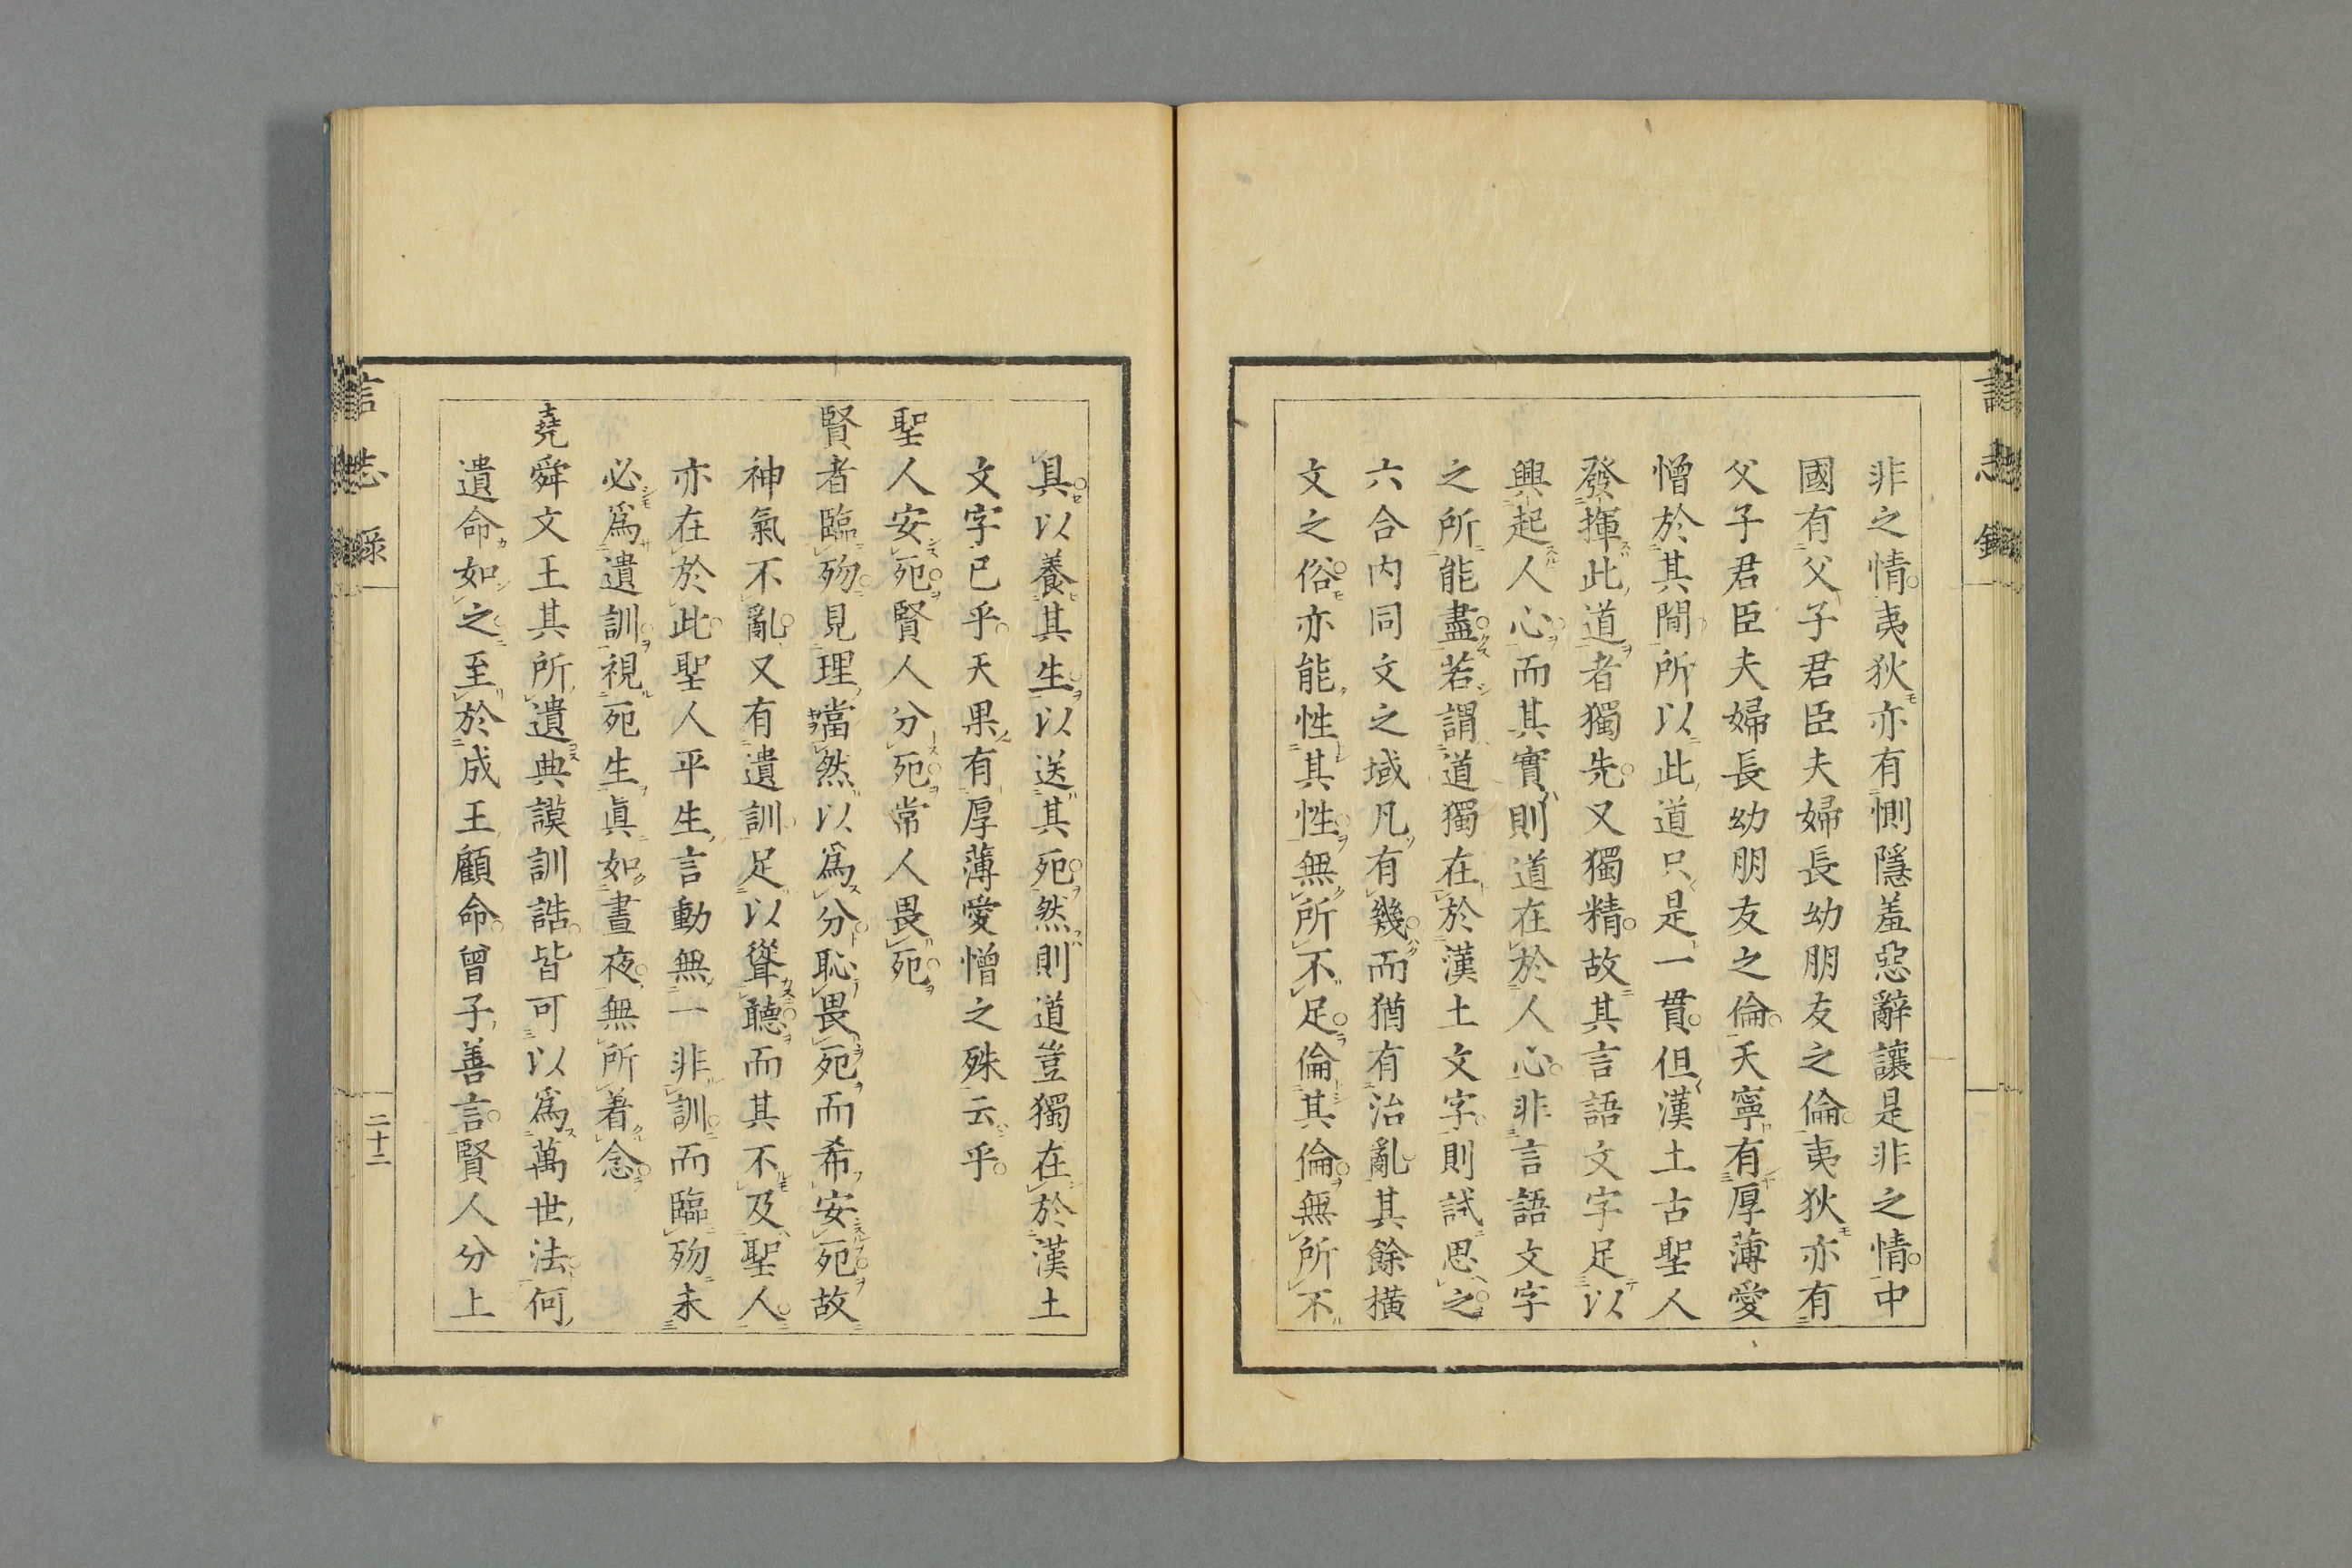 非之情夷狄亦有惻隱羞惡辭讓是非之情中
國有父子君臣夫婦長幼朋友之倫夷狄亦有
父子君臣夫婦長幼朋友之倫天寧有厚薄愛
憎於其間所以此道只是一貫但漢土古聖人
發揮此道者獨先又獨精故其言語文字足以
興起人心而其實則道在於人心非言語文字
之所能盡若謂道獨在於漢土文字則試思之
六合内同文之域凡有幾而猶有治亂其餘橫
文之俗亦能性其性無所不足倫其倫無所不
具以養其生以送其死然則道豈獨在於漢土
文字已乎天果有厚薄愛憎之殊云乎
聖人安死賢人分死常人畏死
賢者臨歾見理當然以爲分恥畏死而希安死故
神氣不亂又有遺訓足以聳聽而其不及聖人
亦在於此聖人平生言動無一非訓而臨歾未
必爲遺訓視死生眞如晝夜無所着念
堯舜文王其所遺典謨訓誥皆可以爲萬世法何
遺命如之至於成王顧命曾子善言賢人分上
言志録
二十二